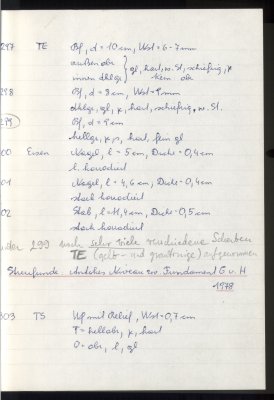 297 TE Bf, d = 10 cm, Wst = 6-7 mm
außen obr
innen dklge } gl, hart, w. St, schiefrig, x
298 Bf, d = 8 cm, Wst = 9 mm
dklge, gl, x, hart, schiefrig, w. St.
299 Bf, d = 9 cm
hellge, hart, fein gl
00 Eisen Nagel, l = 5 cm, Dicke = 0,4 cm
l. korrodiert
01 Nagel, l = 4,6 cm, Dicke = 0,4 cm
stark korrodiert
02 Stab, l = 11,4 cm, Dicke = 0,5 cm
stark korrodiert
299 auch sehr viele verschiedene Scherben
TE (gelb- und grautonige) aufgenommen
Streufunde. Antikes Niveau Fundament G u. H
1978
303 TS Wf mit Relief, Wst = 0,7 cm
T = hellobr, x, hart
Ü = obr, l, gl